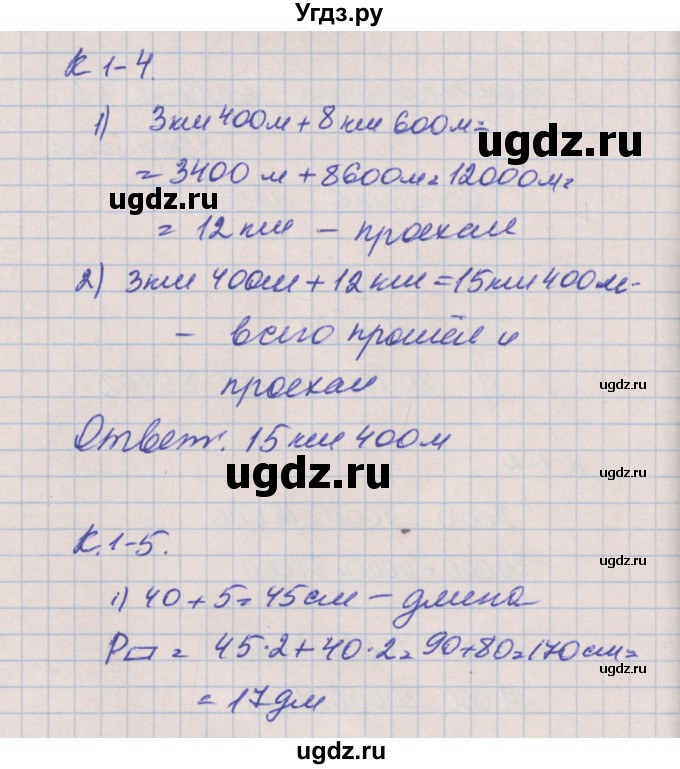 Угдз.ру
К 1-4.
1) 3км 400м + 8км 600м =
= 3400 м + 8600м = 12000м =
= 12 км – проехал
2) 3км 400м + 12 км = 15км 400м -
– всего прошёл и
проехал
Ответ. 15 км 400м
К.1-5.
1) 40 + 5 = 45 см – длина
P▱ = 45·2 + 40·2 = 90+80=170 см =
= 17 дм
ugdz.ru
ugdz.ru
ugdz.ru
ugdz.ru
ugdz.ru
ugdz.ru
ugdz.ru
ugdz.ru